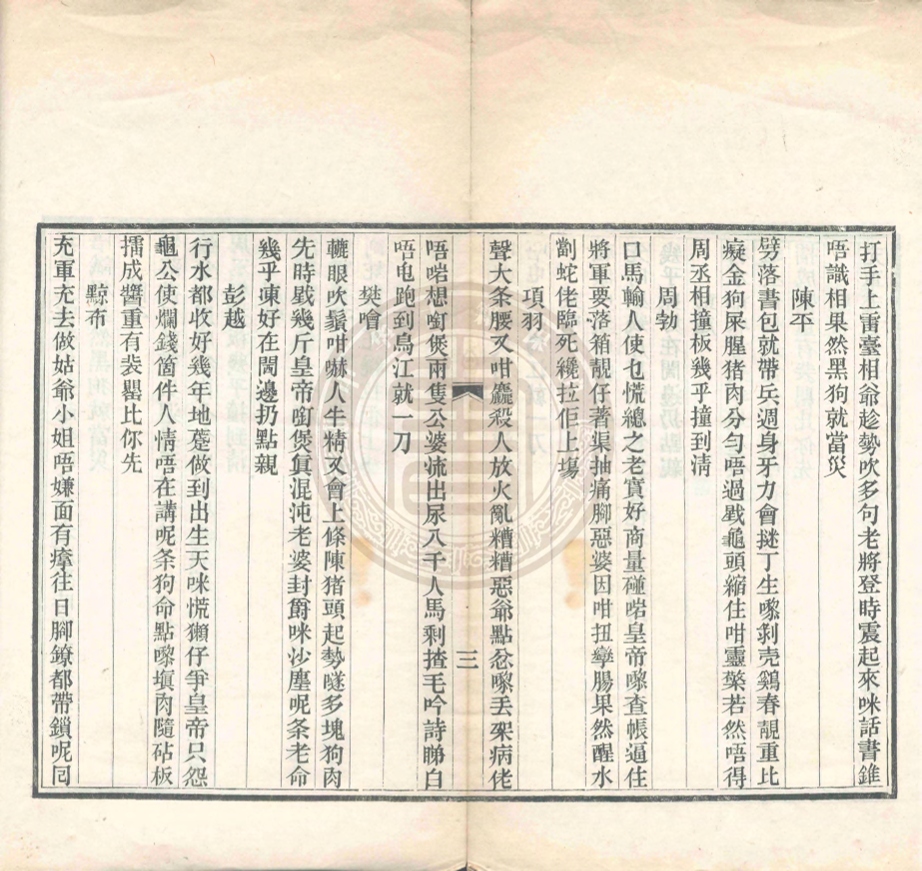 打手上雷臺相爺趁勢吹多句老將登時震起來咪話書錐
唔識相果然黑狗就當災
陳平
劈落書包就帶兵週身牙力會㨢丁生嚟剝壳鷄春靚重比
癡金狗屎腥猪肉分勻唔過戥龜頭縮住咁靈擎若然唔得
周丞相撞板幾乎撞到凊
周勃
口馬輸人使乜慌總之老實好商量碰啱皇帝嚟查帳逼住
將軍要落箱靚仔著渠抽痛腳惡婆因咁扭孿腸果然醒水
劏蛇佬臨死纔拉佢上塲
項羽
聲大条腰又咁麤殺人放火亂糟糟惡爺點忿嚟丟架病佬
唔啱想㗎煲兩隻公婆流出尿八千人馬剩揸毛吟詩睇白
唔屯跑到烏江就一刀
樊噲
轆眼吹鬚咁嚇人牛精又會上條陳猪頭起勢㗾多塊狗肉
先時戥幾斤皇帝㗎煲眞混沌老婆封爵咪沙塵呢条老命
幾乎凍好在閪邊扔點親
彭越
行水都收好幾年地躉做到出生天咪慌獺仔爭皇帝只怨
龜公使爛錢箇件人情唔在講呢条狗命點嚟塡肉隨砧板
擂成醬重有裝罌比你先
黥布
充軍充去做姑爺小姐唔嫌面有瘴往日腳鐐都帶鎖呢囘
三